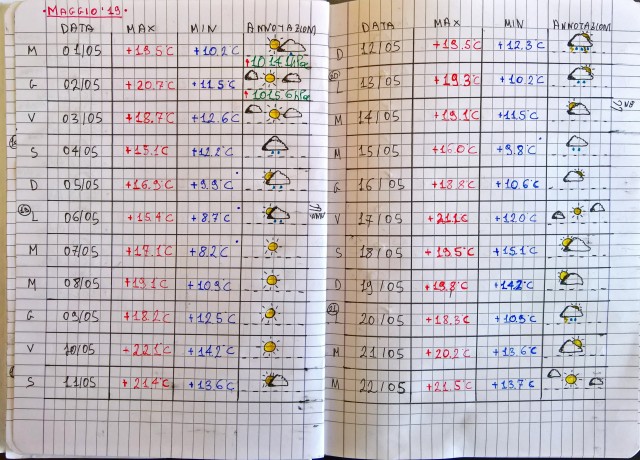 MAGGIO '19
DATA MAX MIN ANNOTAZIONI
M 01/05 +19.5°C +10.2°C 1014 hPa
G 02/05 +20.7°C +11.5°C 1015.6 hPa
V 03/05 +18.7°C +12.6°C
S 04/05 +15.1°C +12.2°C
D 05/05 +16.9°C +9.9°C
L 06/05 +15.4°C +8.7°C
M 07/05 +17.1°C +8.2°C
M 08/05 +19.1°C +10.9°C
G 09/05 +18.2°C +12.5°C
V 10/05 +22.1°C +14.2°C
S 11/05 +21.4°C +13.6°C
DATA MAX MIN ANNOTAZIONI
D 12/05 +19.5°C +12.3°C
L 13/05 +19.3°C +10.2°C
M 14/05 +19.1°C +11.5°C
M 15/05 +16.0°C +9.8°C
G 16/05 +18.8°C +10.6°C
V 17/05 +21.1°C +12.0°C
S 18/05 +19.5°C +15.1°C
D 19/05 +19.8°C +14.2°C
20/05 +18.3°C +10.9°C
M 21/05 +20.2°C +13.6°C
M 22/05 +21.5°C +13.7°C